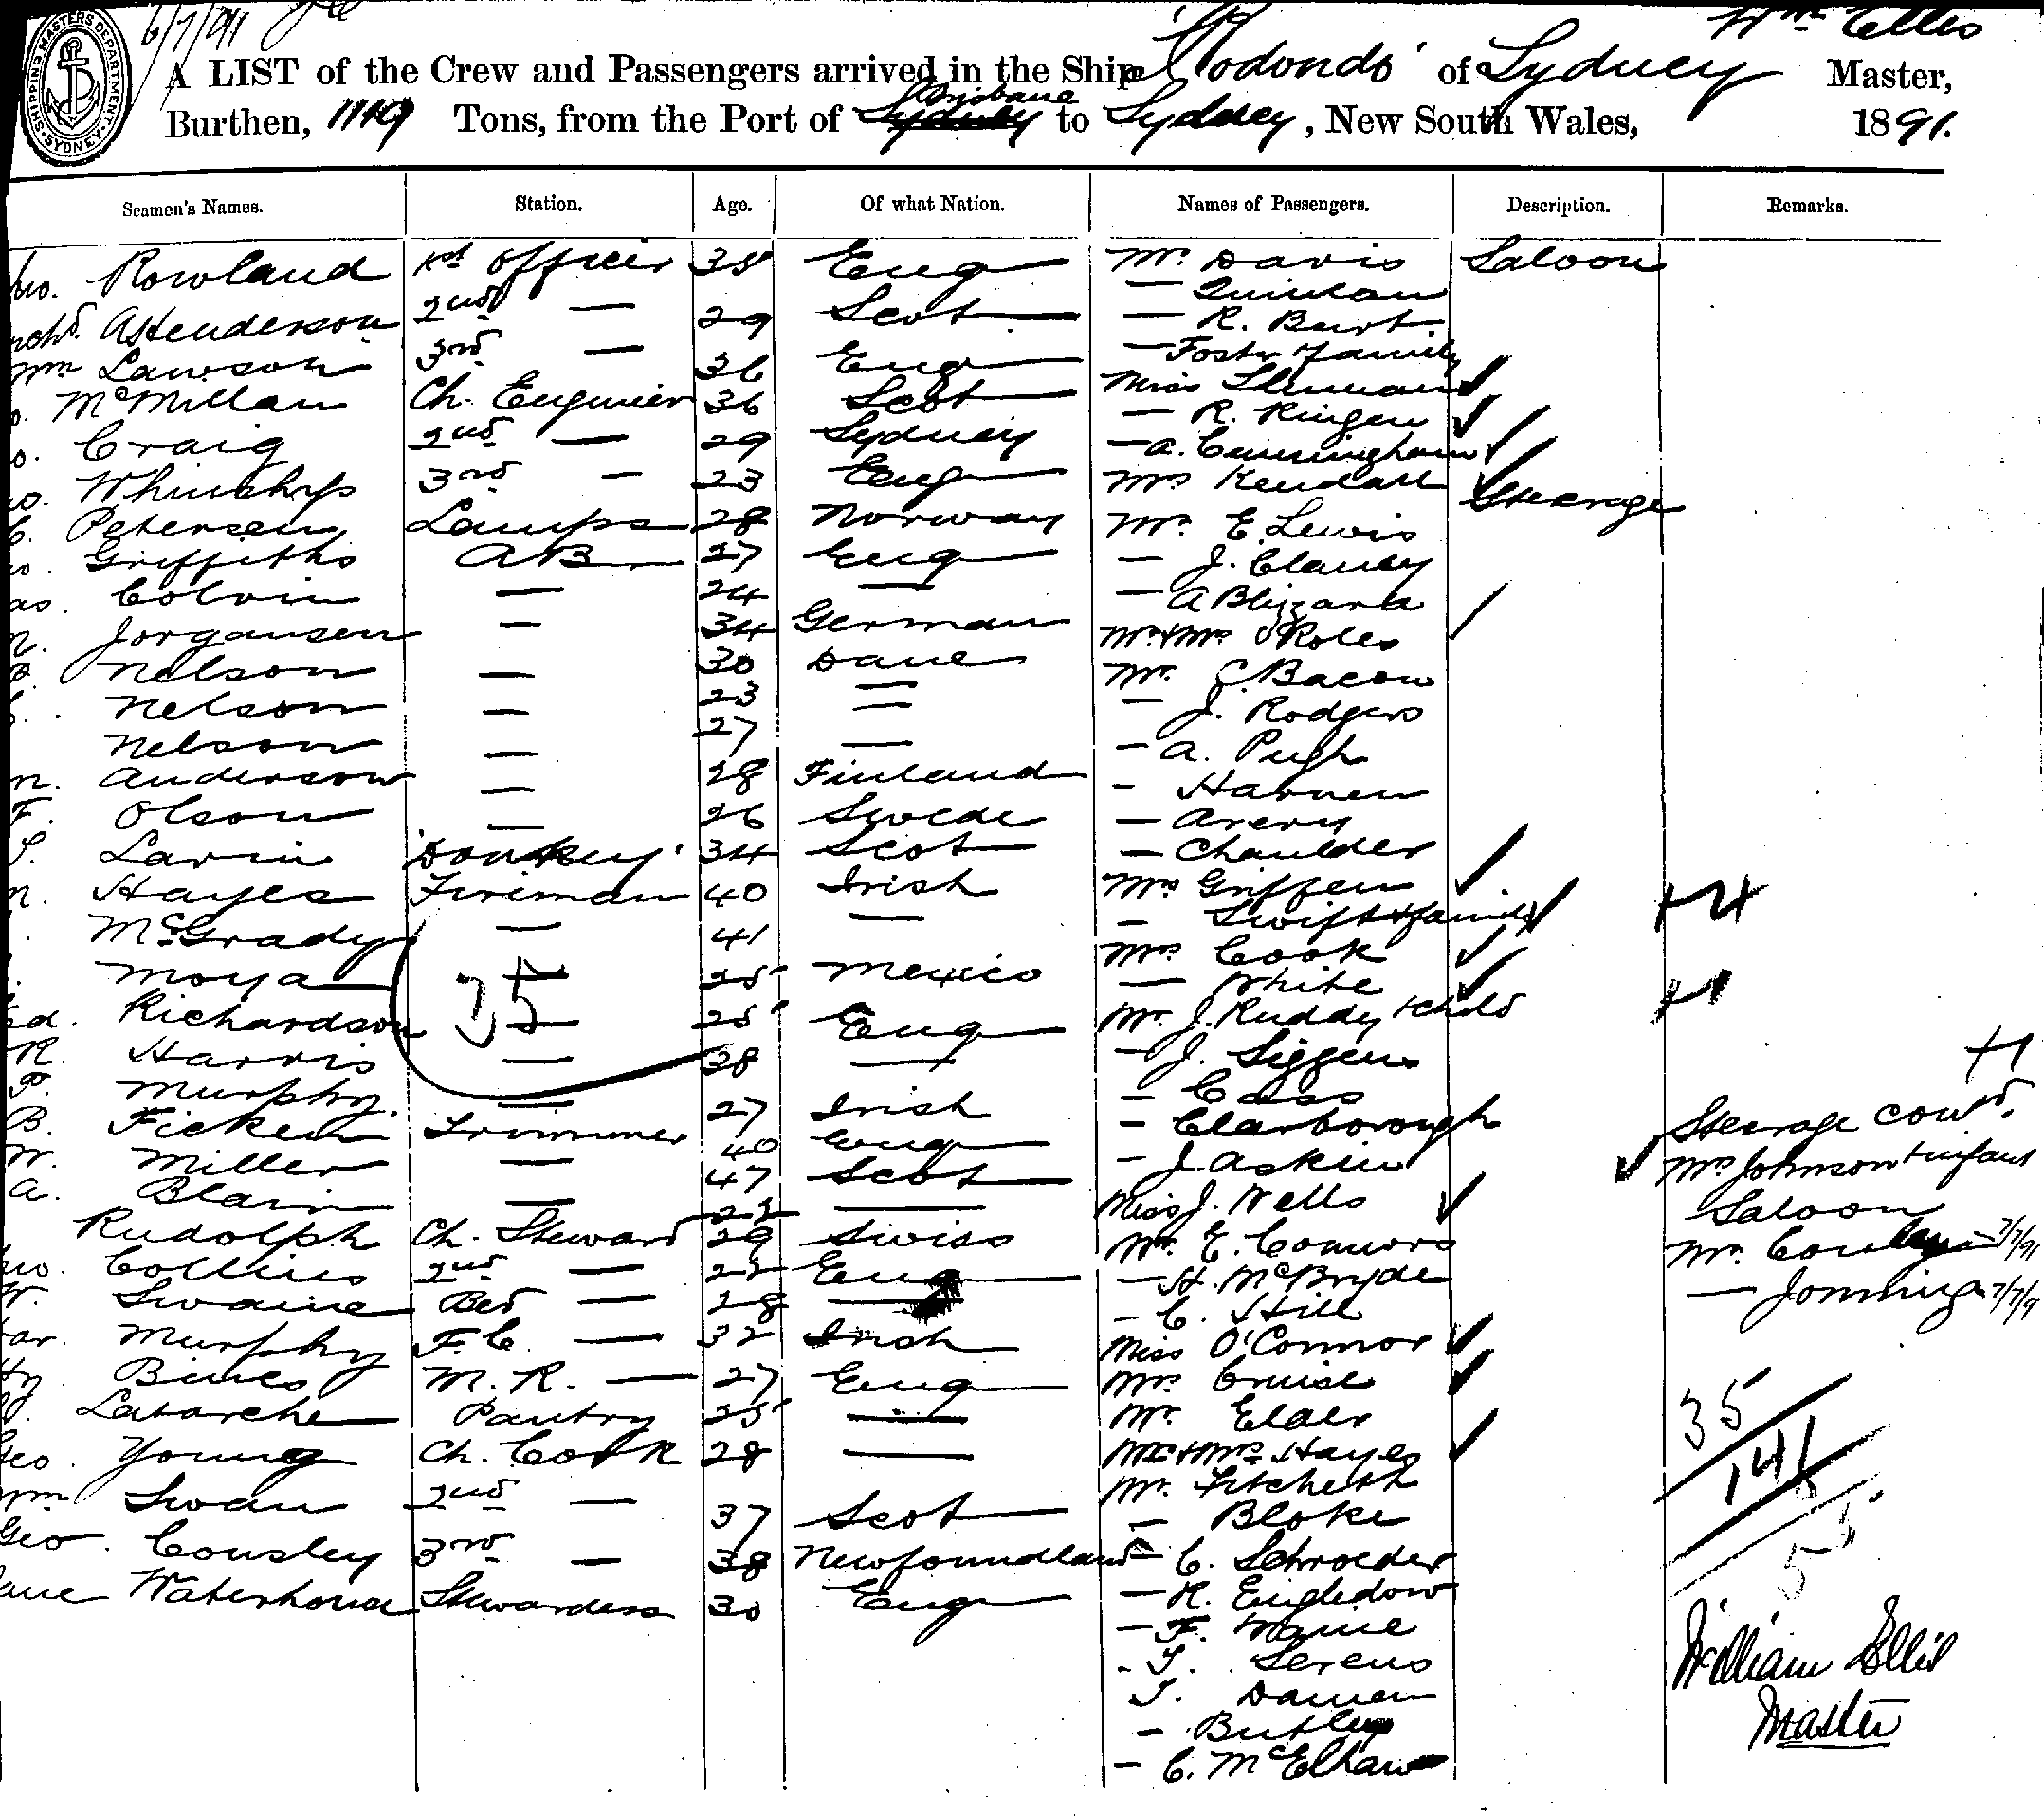 6/7/91
Wm Ellis
SHIPPING MASTERS DEPARTMENT. SYDNEY
A LIST of the Crew and Passengers arrived in the Ship 'Rodondo' of Sydney Master,
Brisbane
Burthen, 1119 Tons, from the Port of Sydney to Sydney, New South Wales, 1891.
Seamen's Names. Station. Age. Of what Nation. Names of Passengers. Description. Remarks.
Rowland 1st Officer 38 Eng Mr. Davis Saloon
— Quinlan
A Henderson 2nd — 29 Scot — R. Burt.
Wm Lawson 3rd — 36 Eng — Foster & family
McMillan Ch. Engineer 36 Scot Miss
— R. Ringen
Craig 2nd — 29 Sydney — A. Cunningham
3rd — 23 Eng Mrs Kendall Steerage
C. Petersen Lamps 28 Norway Mr. E. Lewis
Griffiths AB 27 Eng — J. Clancy
Colvin — 24 — — A Blizzard
Jorgansen — 34 German Mr. & Mrs. Roles
Nelson — 30 Dane Mr. C. Bacon
Nelson — 23 — — J. Rodgers
Nelson — 27 — — A. Pugh
n. Anderson — 28 Finland — Harnen
F. Olson — 26 Swede — Avery
S. Larin 'Donkey' 34 Scot — Chaulder
n. Hayes Fireman 40 Irish Mrs Griffen
McGrady — 41 — — Swift & family +4
Moya — 25 Mexico Mrs Cook
— White
Richardson — 25 Eng Mr. J. Ruddy & child +1
35
R. Harris — 38 — — J. Siggens +1
P. Murphy. — 27 Irish — Cass
B. Ficken Trimmer 40 Eng — Clarborough Steerage contd.
W. Miller — 47 Scot — J. Askin Mrs Johnson & infant
A. Blair — 22 — Miss J. Wells Saloon
Rudolph Ch. Steward 29 Swiss Mr. E. Connors Mr. 7/7/91
Collins 2nd — 22 Eng — H. McBryde
W. Swaine Bed — 28 — — C. Hill — 7/7/9
Murphy F.C. — 32 Irish Miss O'Connor
Hy. Bines M.R. — 27 Eng Mrs Cruise
Latarche Pantry 25 — Mr. Elder 35
Geo. Young Ch. Cook 28 — Mr & Mrs Hayes 141
Wm Swan 2nd — 37 Scot Mr. Fitchett
— Bloke 55
Geo. Cousley 3rd — 38 Newfoundland — C. Schroeder
Jane Waterhouse Stewardess 30 Eng — R. Engledow
— F. Waine
— T. Serens
T. Damen
— Butler
— C. McElhaw
William Ellis
Master